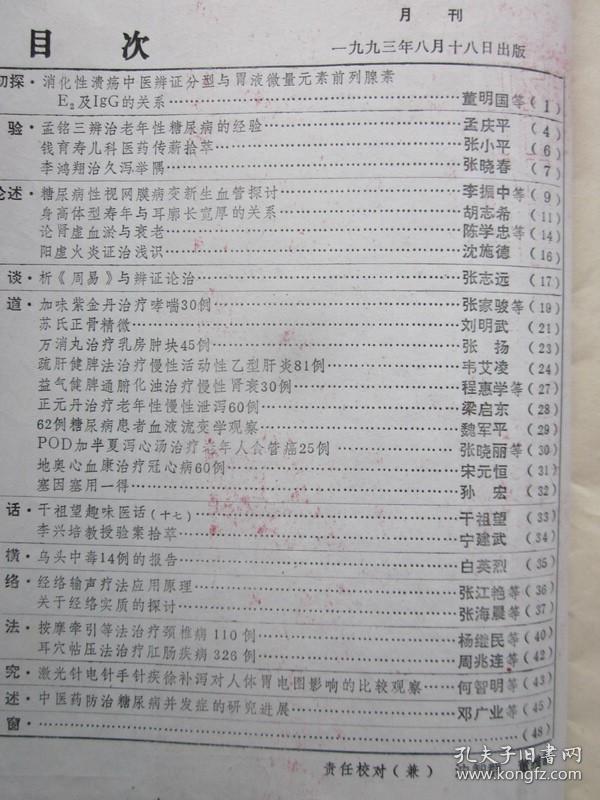 月 刊
目 次
一九九三年八月十八日出版
初探·消化性溃疡中医辨证分型与胃液微量元素前列腺素
E₂及IgG的关系……董明国等(1)
验·孟铭三辨治老年性糖尿病的经验……孟庆平(4)
钱育寿儿科医药传薪拾萃……张小平(6)
李鸿翔治久泻举隅……张晓春(7)
论述·糖尿病性视网膜病变新生血管探讨……李振中等(9)
身高体型寿年与耳廓长宽厚的关系……胡志希(11)
论肾虚血淤与衰老……陈学忠等(14)
阳虚火炎证治浅识……沈施德(16)
谈·析《周易》与辨证论治……张志远(17)
道·加味紫金丹治疗哮喘30例……张家骏等(19)
苏氏正骨精微……刘明武(21)
万消丸治疗乳房肿块45例……张 扬(23)
疏肝健脾法治疗慢性活动性乙型肝炎81例……韦艾凌(24)
益气健脾通腑化浊治疗慢性肾衰30例……程惠学等(27)
正元丹治疗老年性慢性泄泻60例……梁启东(28)
62例糖尿病患者血液流变学观察……魏军平(29)
POD加半夏泻心汤治疗老年人食管癌25例……张晓丽等(30)
地奥心血康治疗冠心病60例……宋元恒(31)
塞因塞用一得……孙 宏(32)
话·干祖望趣味医话(十七)……干祖望(33)
李兴培教授验案拾萃……宁建武(34)
横·乌头中毒14例的报告……白英烈(35)
络·经络输声疗法应用原理……张江艳等(36)
关于经络实质的探讨……张海晨等(37)
法·按摩牵引等法治疗颈椎病110例……杨继民等(40)
耳穴帖压法治疗肛肠疾病326例……周兆连等(42)
究·激光针电针手针疾徐补泻对人体胃电图影响的比较观察……何智明等(43)
述·中医药防治糖尿病并发症的研究进展……邓广业等(45)
窗·……(48)
责任校对(兼)
孔夫子旧书网
www.kongfz.com